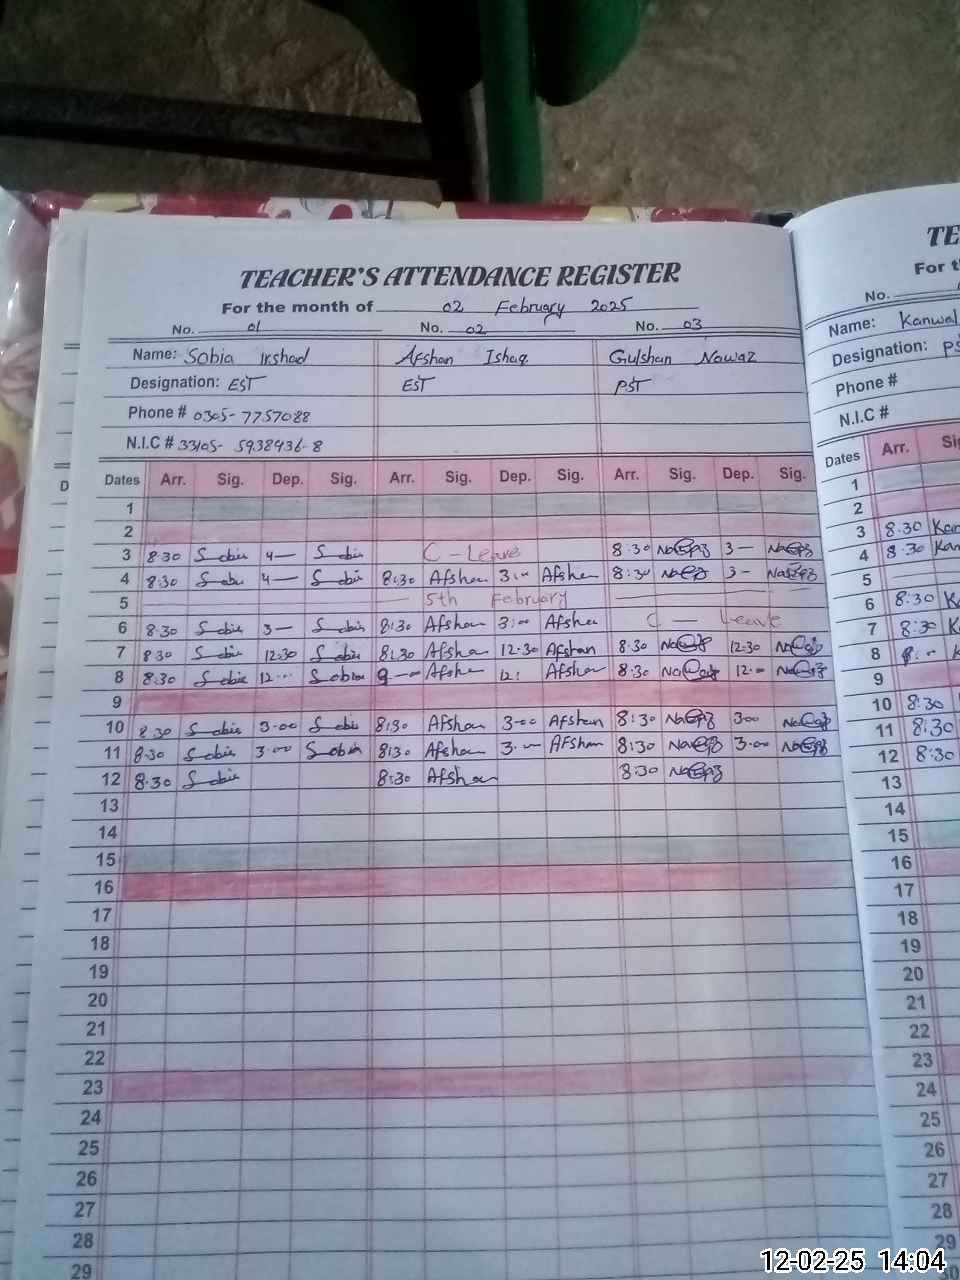 TEACHER'S ATTENDANCE REGISTER
For the month of 02 February 2025
No. 01 No. 02 No. 03
Name: Sobia Irshad Afshan Ishaq Gulshan Nawaz
Designation: EST EST PST
Phone # 0305-7757088
N.I.C # 33105-5938936-8
Dates Arr. Sig. Dep. Sig. Arr. Sig. Dep. Sig. Arr. Sig. Dep. Sig.
1
2
3 8.30 Sobia 4— Sobia C-Leave 8:30 3—
4 8:30 Sobia 4— Sobia 8:30 Afshan 3:— Afshan 8:30 3-
5 5th February
6 8:30 Sobia 3— Sobia 8:30 Afshan 3:00 Afshan C — Leave
7 8.30 Sobia 12.30 Sobia 8:30 Afshan 12.30 Afshan 8.30 12.30
8 8.30 Sobia 12.-- Sobia 9-00 Afshan 12: Afshan 8:30 12.00
9
10 8.30 Sobia 3.00 Sobia 8:30 Afshan 3-00 Afshan 8:30 300
11 8.30 Sobia 3.00 Sobia 8:30 Afshan 3.— Afshan 8:30 3.00
12 8.30 Sobia 8:30 Afshan 8:30
13
14
15
16
17
18
19
20
21
22
23
24
25
26
27
28
29
TE
For t
No.
Name: Kanwal
Designation: PS
Phone #
N.I.C #
Dates Arr. Si
1
2
3 8.30 Kan
4 8.30 Kan
5
6 8:30 K
7 8:30 K
8 K
9
10 8:30
11 8:30
12 8:30
13
14
15
16
17
18
19
20
21
22
23
24
25
26
27
28
29
30
D
12-02-25 14:04